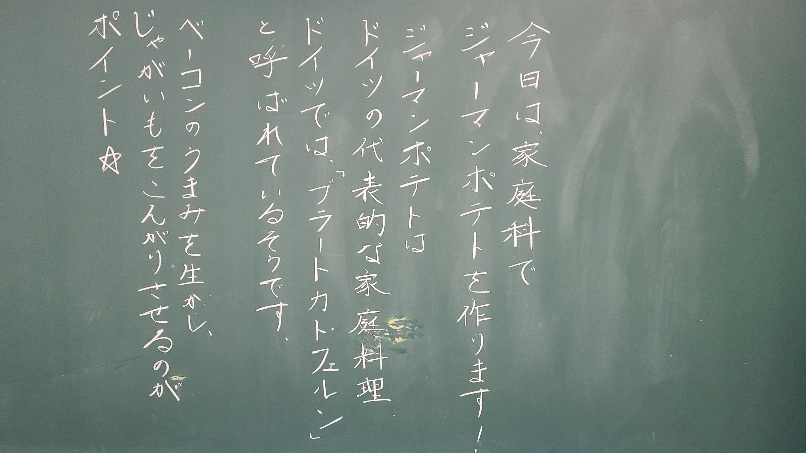 今日は、家庭科で
ジャーマンポテトを作ります!
ジャーマンポテトは
ドイツの代表的な家庭料理
ドイツでは、「ブラートカトフェルン」
と呼ばれているそうです.
ベーコンのうまみを生かし、
じゃがいもをこんがりさせるのが
ポイント☆